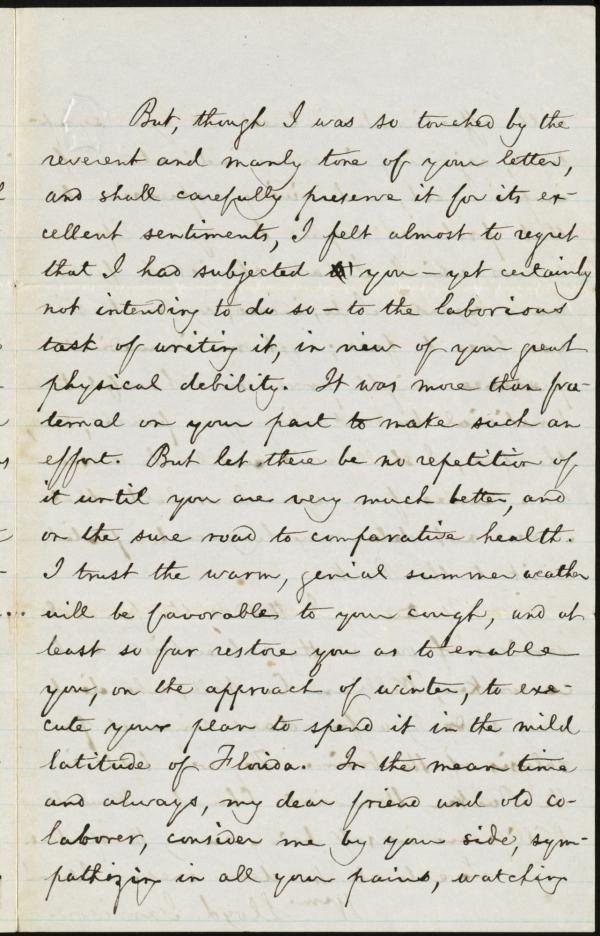 But, though I was so touched by the
reverent and manly tone of your letter,
and shall carefully preserve it for its ex-
cellent sentiments, I felt almost to regret
that I had subjected you — yet certainly
not intending to do so — to the laborious
task of writing it, in view of your great
physical debility. It was more than fra-
ternal on your part to make such an
effort. But let there be no repetition of
it until you are very much better, and
on the sure road to comparative health.
I trust the warm, genial summer weather
will be favorable to your cough, and at
least so far restore you as to enable
you, on the approach of winter, to exe-
cute your plan to spend it in the mild
latitude of Florida. In the mean time
and always, my dear friend and old co-
laborer, consider me by your side, sym-
pathizing in all your pains, watching